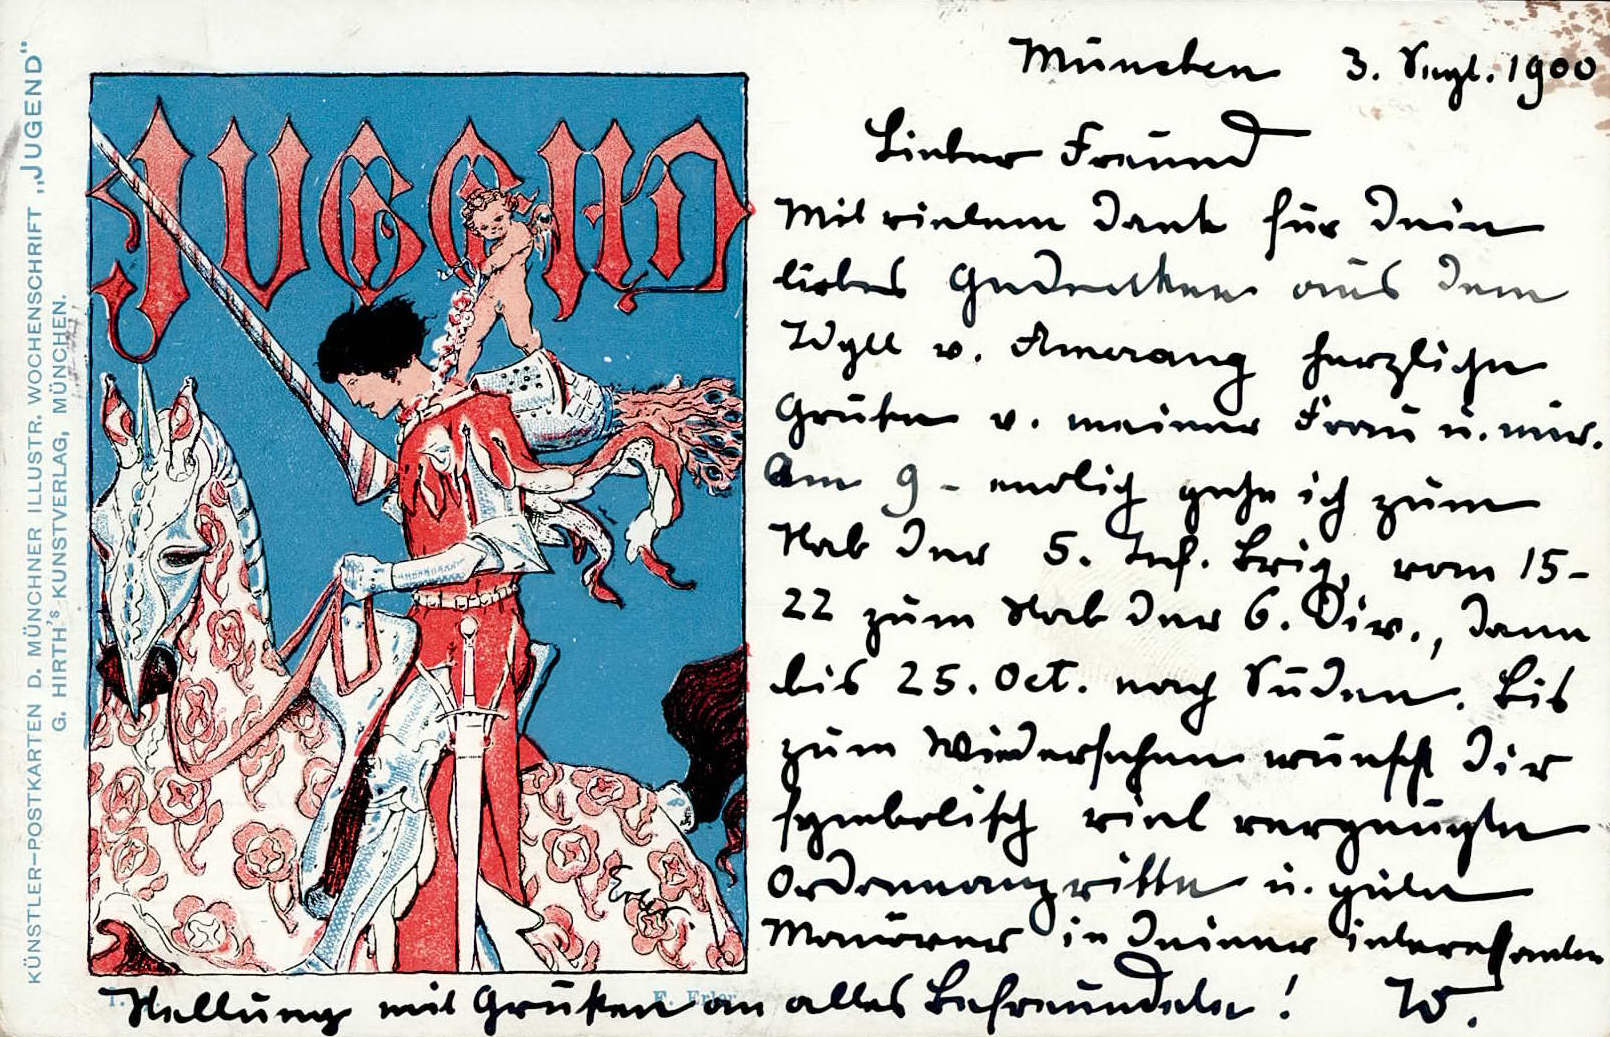 KÜNSTLER–POSTKARTEN D. MÜNCHNER ILLUSTR. WOCHENSCHRIFT „JUGEND“
G. HIRTH's KUNSTVERLAG, MÜNCHEN.
JUGEND
Erler
F. Erler
München 3. Sept. 1900
Lieber Freund
Mit vielem Dank für Dein
liebes Gedenken aus dem
Idyll v. Amerang herzliche
Grüße v. meiner Frau u. mir.
Am 9 - endlich gehe ich zum
Stab der 5. Inf. Brig, vom 15-
22 zum Stab der 6. Div., dann
bis 25. Oct. nach Süden. Bis
zum Wiedersehen wünscht Dir
symbolisch viel vergnügte
Ordonnanzritte u. gute
Manöver in Deiner interessanten
Stellung mit Grüßen an alles Befreundete! W.